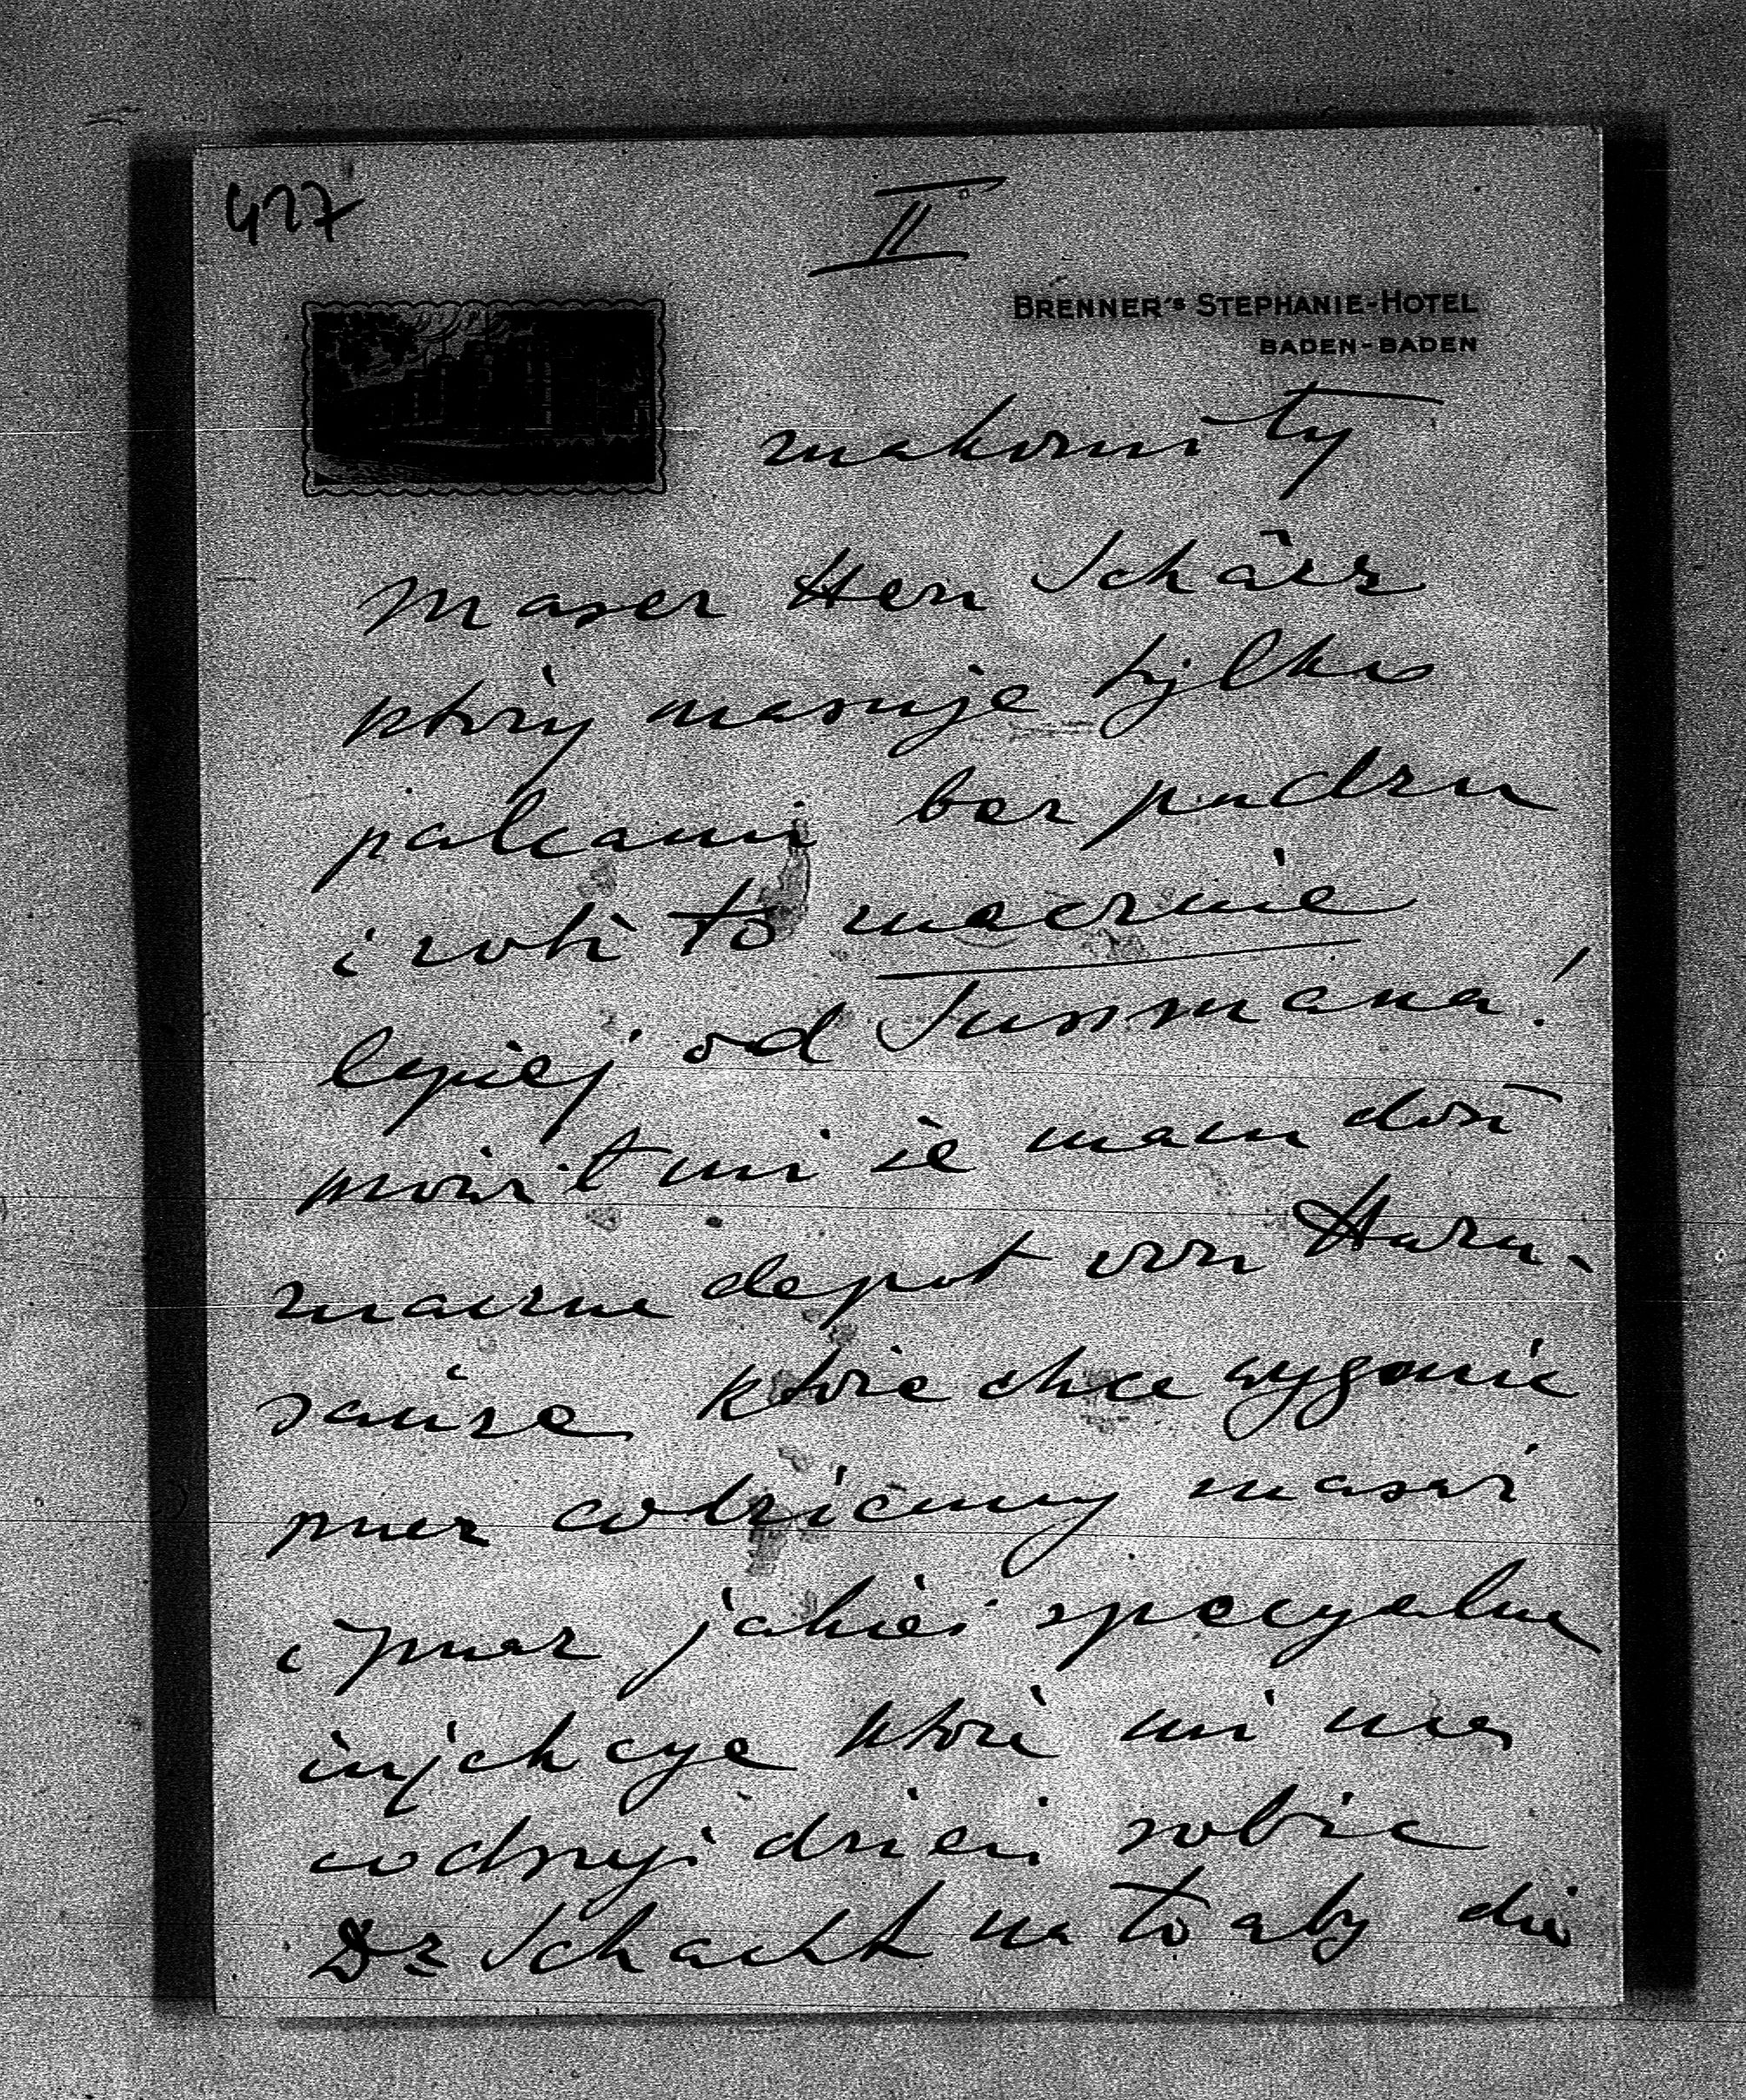 427
II
BRENNER'S STEPHANIE-HOTEL
BADEN-BADEN
znakomity
Maser Herr Schärr
który masuje tylko
palcami bez pudru
i robi to znacznie
lepiej od Tusmana!
mówi że mam dość
znaczne depot von Harn-
säure które chce wygonić
przez codzienny masaż
i przez jakieś specyalne
injekcye które mi ma
co drugi dzień robić
Dr Schacht na to aby dio